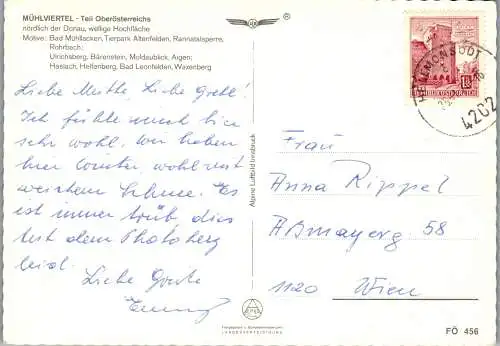 MÜHLVIERTEL - Teil Oberösterreichs
nördlich der Donau, wellige Hochfläche
Motive: Bad Mühllacken, Tierpark Altenfelden, Rannatalsperre,
Rohrbach;
Ulrichsberg, Bärenstein, Moldaublick, Aigen;
Haslach, Helfenberg, Bad Leonfelden, Waxenberg
®
REPUBLIK ÖSTERREICH
HELLMONSÖDT
4202
Liebe Mutter, Liebe Gretl!
Ich fühle mich hier
sehr wohl. Wir haben
hier
weichem Schnee. Es
ist immer trüb, dies
tut dem Photoberg
leid.
Liebe Grüße
Alpine Luftbild Innsbruck
Frau
Anna Rippel
Aßmayerg 58
1120 Wien
LANDESVERTEIDIGUNG
FÖ 456